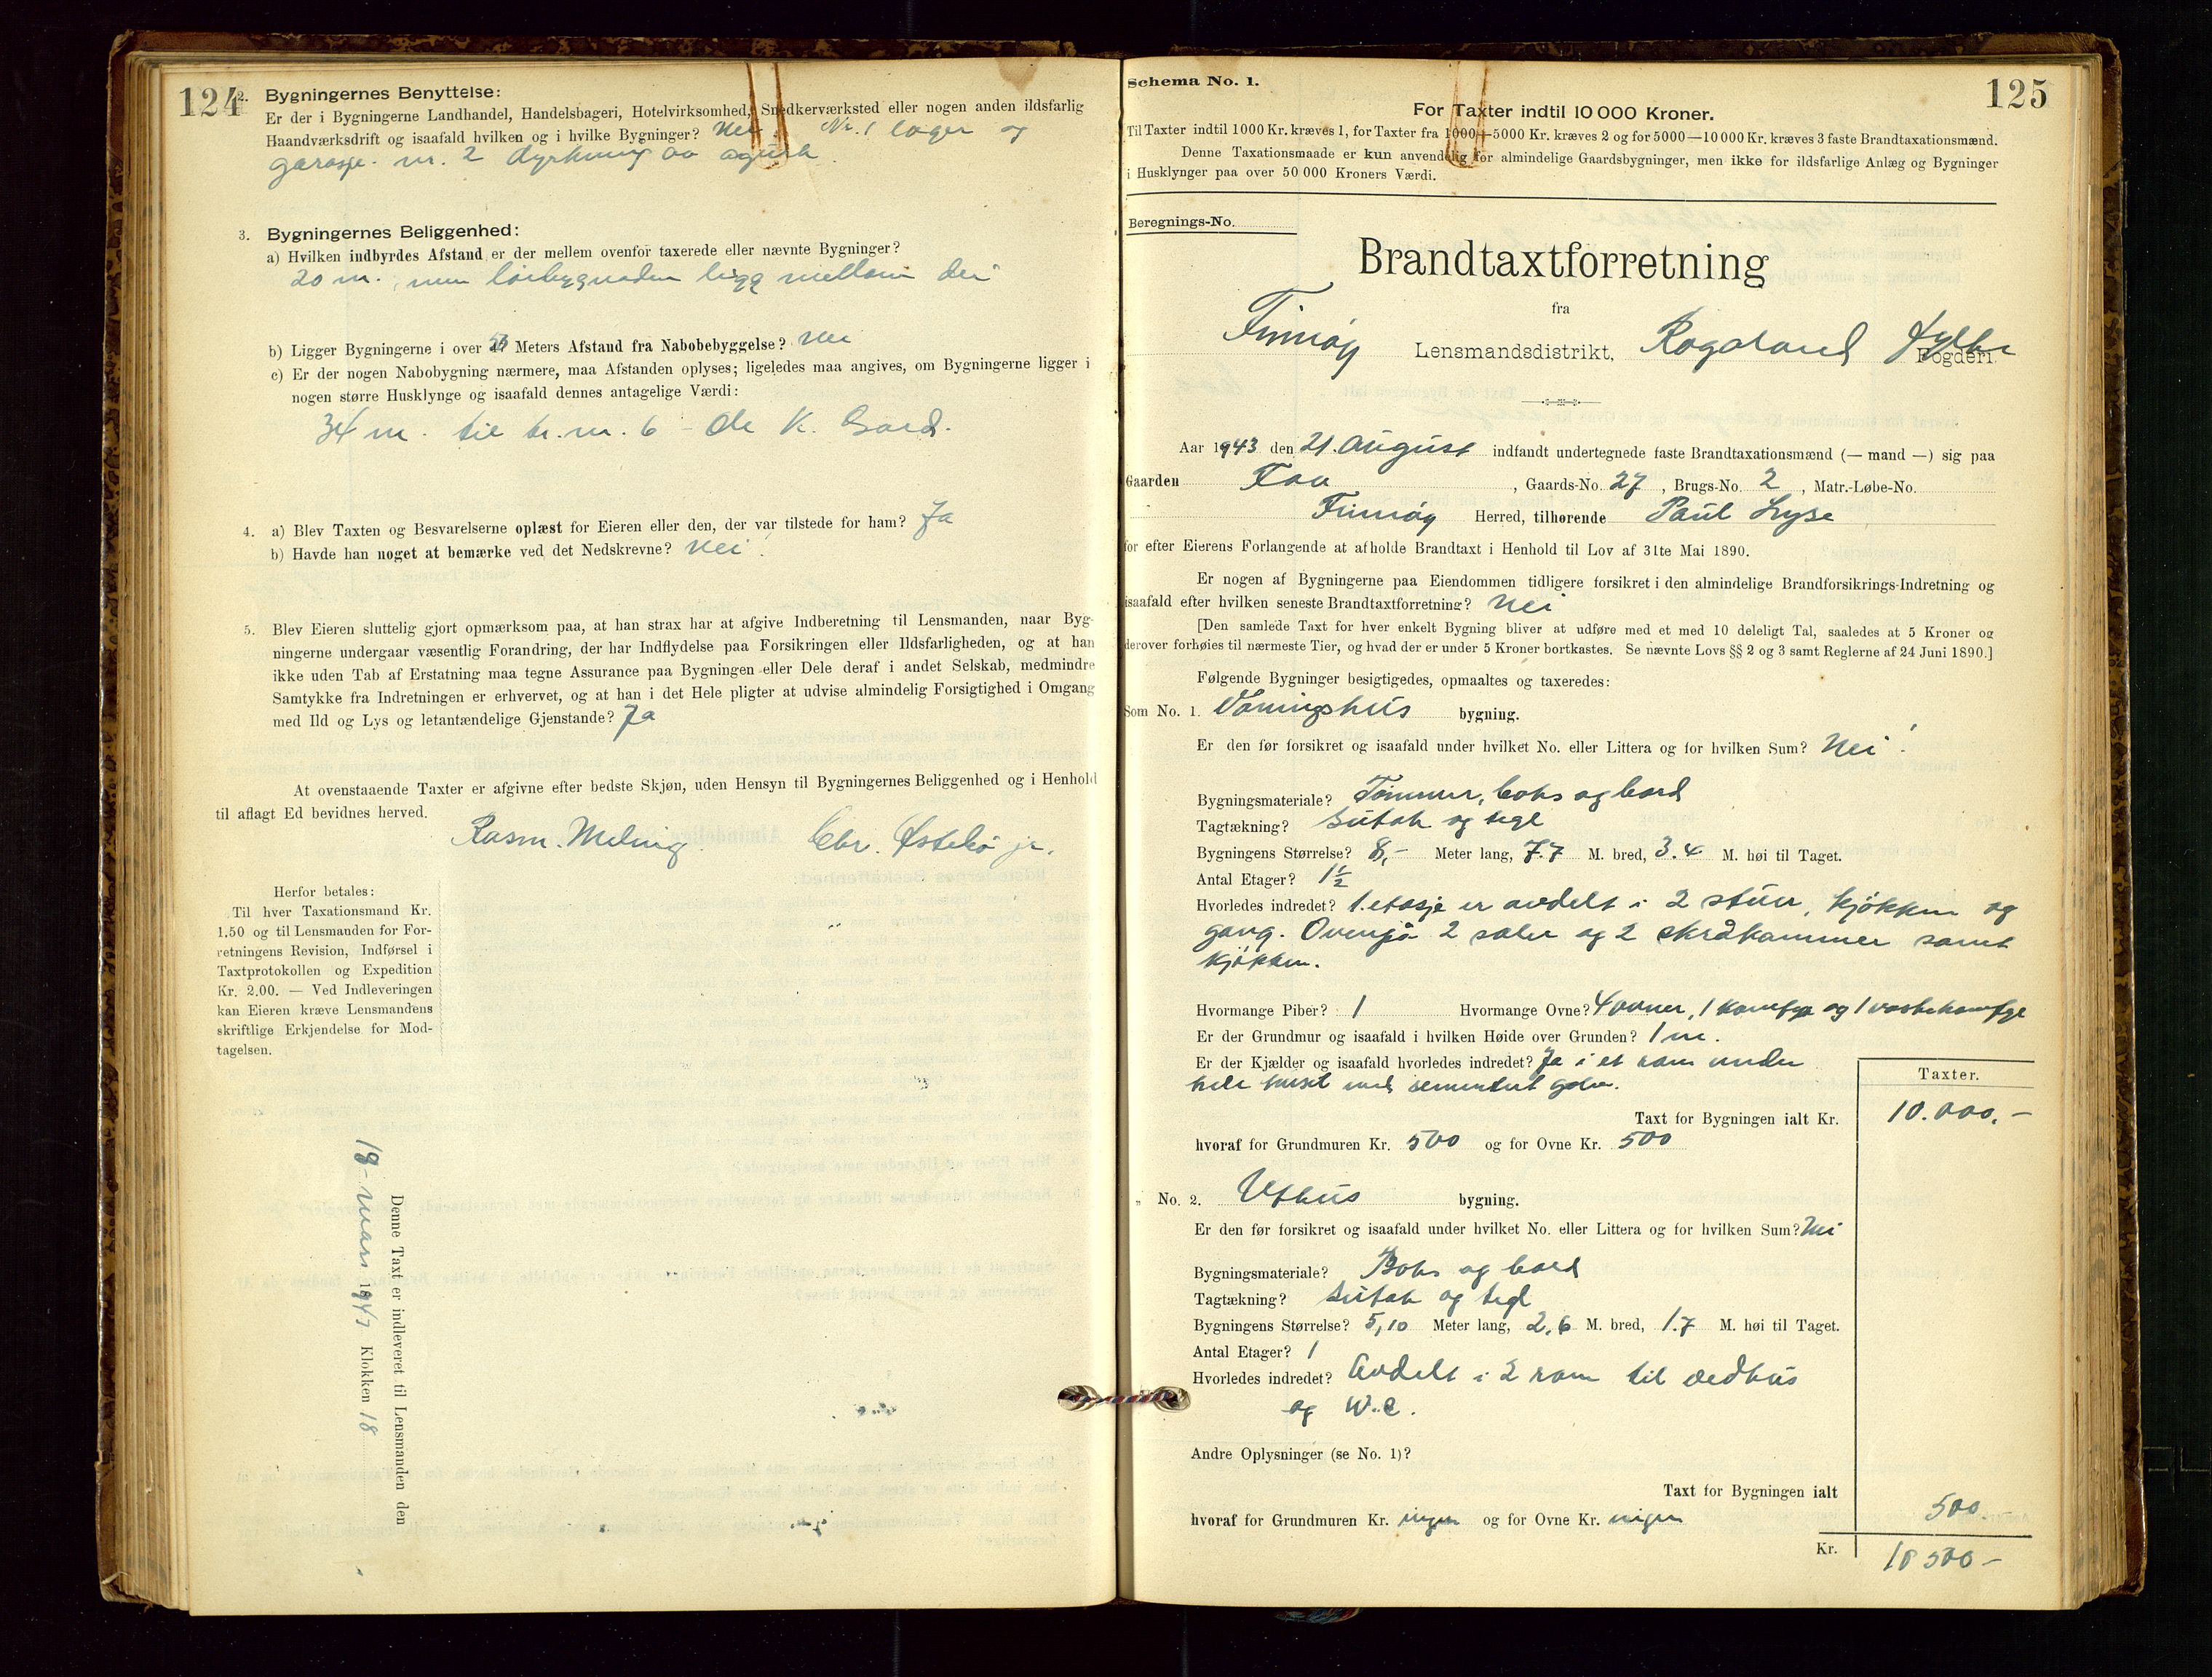 124
2. Bygningernes Benyttelse:
Er der i Bygningerne Landhandel, Handelsbageri, Hotelvirksomhed, Snedkerværksted eller nogen anden ildsfarlig
Haandværksdrift og isaafald hvilken og i hvilke Bygninger? Nei. Nr. 1 lager og
garasje. nr. 2 dyrkning av agurk.
3. Bygningernes Beliggenhed:
a) Hvilken indbyrdes Afstand er der mellem ovenfor taxerede eller nævnte Bygninger?
20 m. men løebygnaden ligg mellom dei
b) Ligger Bygningerne i over Meters Afstand fra Nabobebyggelse? Nei
c) Er der nogen Nabobygning nærmere, maa Afstanden oplyses; ligeledes maa angives, om Bygningerne ligger i
nogen større Husklynge og isaafald dennes antagelige Værdi:
34 m. til br. nr. 6 - K. Gard.
4. a) Blev Taxten og Besvarelserne oplæst for Eieren eller den, der var tilstede for ham? Ja
b) Havde han noget at bemærke ved det Nedskrevne? Nei.
5. Blev Eieren sluttelig gjort opmærksom paa, at han strax har at afgive Indberetning til Lensmanden, naar Byg-
ningerne undergaar væsentlig Forandring, der har Indflydelse paa Forsikringen eller Ildsfarligheden, og at han
ikke uden Tab af Erstatning maa tegne Assurance paa Bygningen eller Dele deraf i andet Selskab, medmindre
Samtykke fra Indretningen er erhvervet, og at han i det Hele pligter at udvise almindelig Forsigtighed i Omgang
med Ild og Lys og letantændelige Gjenstande? Ja
At ovenstaaende Taxter er afgivne efter bedste Skjøn, uden Hensyn til Bygningernes Beliggenhed og i Henhold
til aflagt Ed bevidnes herved.
Rasm. Meling Chr. Østebø jr.
Herfor betales:
Til hver Taxationsmand Kr.
1.50 og til Lensmanden for For-
retningens Revision, Indførsel i
Taxtprotokollen og Expedition
Kr. 2.00. — Ved Indleveringen
kan Eieren kræve Lensmandens
skriftlige Erkjendelse for Mod-
tagelsen.
Denne Taxt er indleveret til Lensmanden den
18-mars 1947 Klokken 18
Schema No. 1.
125
For Taxter indtil 10 000 Kroner.
Til Taxter indtil 1000 Kr. kræves 1, for Taxter fra 1000—5000 Kr. kræves 2 og for 5000—10 000 Kr. kræves 3 faste Brandtaxationsmænd.
Denne Taxationsmaade er kun anvendelig for almindelige Gaardsbygninger, men ikke for ildsfarlige Anlæg og Bygninger
i Husklynger paa over 50 000 Kroners Værdi.
Beregnings-No.
Brandtaxtforretning
fra
Finnøy Lensmandsdistrikt, Rogaland fylke Fogderi.
Aar 1943 den 21. August indfandt undertegnede faste Brandtaxationsmænd (— mand —) sig paa
Gaarden , Gaards-No. 27, Brugs-No. 2, Matr.-Løbe-No.
Finnøy Herred, tilhørende Paul Lyse
for efter Eierens Forlangende at afholde Brandtaxt i Henhold til Lov af 31te Mai 1890.
Er nogen af Bygningerne paa Eiendommen tidligere forsikret i den almindelige Brandforsikrings-Indretning og
isaafald efter hvilken seneste Brandtaxtforretning? Nei
[Den samlede Taxt for hver enkelt Bygning bliver at udføre med et med 10 deleligt Tal, saaledes at 5 Kroner og
derover forhøies til nærmeste Tier, og hvad der er under 5 Kroner bortkastes. Se nævnte Lovs §§ 2 og 3 samt Reglerne af 24 Juni 1890.]
Følgende Bygninger besigtigedes, opmaaltes og taxeredes:
Som No. 1. Våningshus bygning.
Er den før forsikret og isaafald under hvilket No. eller Littera og for hvilken Sum? Nei.
Bygningsmateriale? Tømmer, boks og bord
Tagtækning? Sutak og tegl
Bygningens Størrelse? 8,- Meter lang, 7.7 M. bred, 3.4 M. høi til Taget.
Antal Etager? 1½
Hvorledes indredet? 1. etasje er avdelt i 2 stuer, kjøkken og
gang. Ovenpå 2 saler og 2 skråkammer samt
kjøkken.
Hvormange Piber? 1 Hvormange Ovne? 4 ovner, 1 komfyr og 1 vaskekomfyr
Er der Grundmur og isaafald i hvilken Høide over Grunden? 1 m.
Er der Kjælder og isaafald hvorledes indredet? Ja i et rom under
hele huset med sementert golv.
Taxter.
Taxt for Bygningen ialt Kr. 10.000.-
hvoraf for Grundmuren Kr. 500 og for Ovne Kr. 500
„ No. 2. Uthus bygning.
Er den før forsikret og isaafald under hvilket No. eller Littera og for hvilken Sum? Nei
Bygningsmateriale? Boks og bord
Tagtækning? Sutak og tegl
Bygningens Størrelse? 5,10 Meter lang, 2,6 M. bred, 1.7 M. høi til Taget.
Antal Etager? 1
Hvorledes indredet? Avdelt i 2 rom til vedhus
og W.C.
Andre Oplysninger (se No. 1)?
Taxt for Bygningen ialt 500.
hvoraf for Grundmuren Kr. ingen og for Ovne Kr. ingen
Kr. 10 500 -